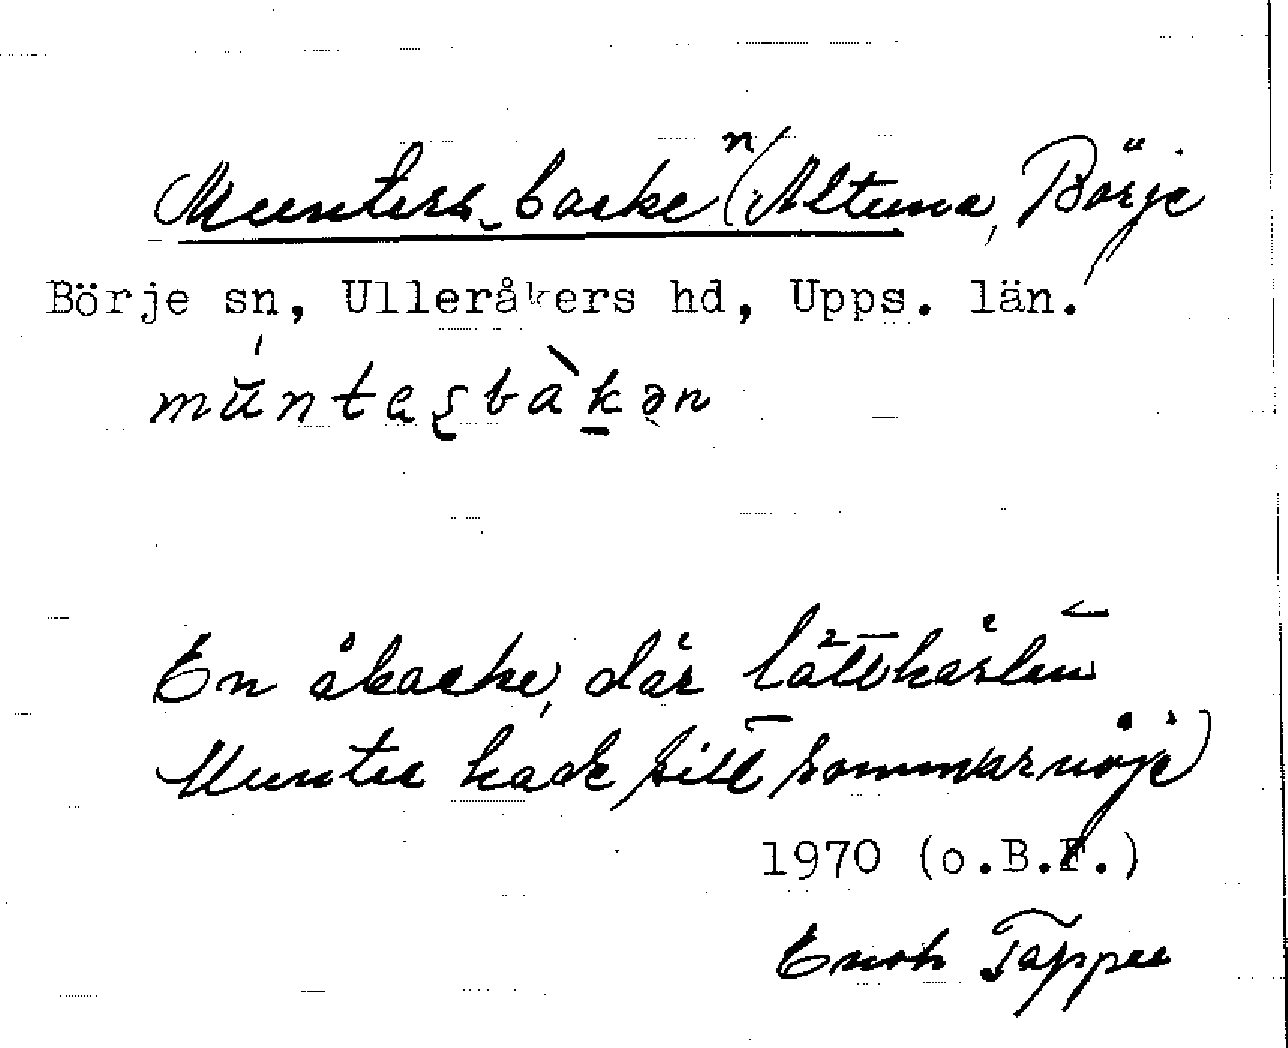 Munters backen (Altuna, Börje
Börje sn, Ulleråkers hd, Upps. län.
múntaʂbàkən
En åbacke, där
Munter hade sitt sommarnöje
1970 (o.B.F.)
Enoh Tappee